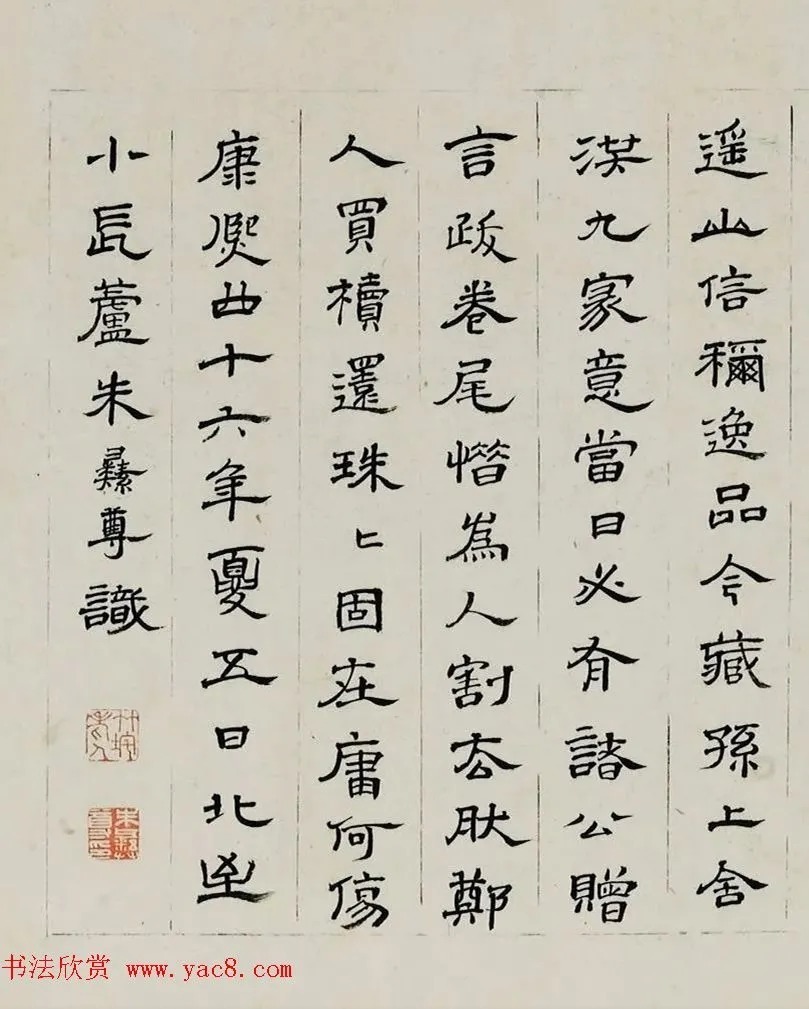 遥山信穪逸品今藏孫上舍
九家意當日必有諸公贈
言跋卷尾惜為人割去肰鄭
人買櫝還珠〻固在庸何傷
康熙四十六年夏五日北至
小長蘆朱彝尊識
竹垞老人
朱彝尊印
书法欣赏 www.yac8.com